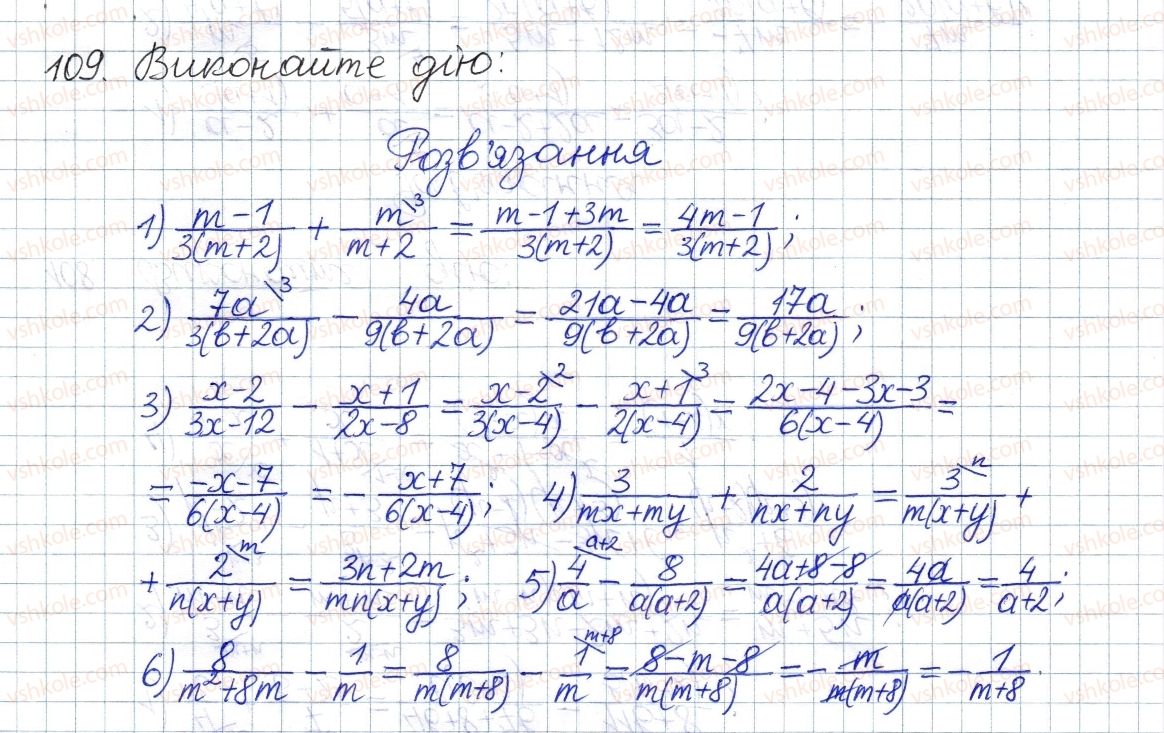 109. Виконайте дію:
Розв'язання
1) \frac{m-1}{3(m+2)} + \frac{m^{\backslash 3}}{m+2} = \frac{m-1+3m}{3(m+2)} = \frac{4m-1}{3(m+2)};
2) \frac{7a^{\backslash 3}}{3(b+2a)} - \frac{4a}{9(b+2a)} = \frac{21a-4a}{9(b+2a)} = \frac{17a}{9(b+2a)};
3) \frac{x-2}{3x-12} - \frac{x+1}{2x-8} = \frac{x-2^{\backslash 2}}{3(x-4)} - \frac{x+1^{\backslash 3}}{2(x-4)} = \frac{2x-4-3x-3}{6(x-4)} =
= \frac{-x-7}{6(x-4)} = -\frac{x+7}{6(x-4)}; 4) \frac{3}{mx+my} + \frac{2}{nx+ny} = \frac{3^{\backslash n}}{m(x+y)} +
+ \frac{2^{\backslash m}}{n(x+y)} = \frac{3n+2m}{mn(x+y)}; 5) \frac{4^{\backslash a+2}}{a} - \frac{8}{a(a+2)} = \frac{4a+8-8}{a(a+2)} = \frac{4a}{a(a+2)} = \frac{4}{a+2};
6) \frac{8}{m^2+8m} - \frac{1}{m} = \frac{8}{m(m+8)} - \frac{1^{\backslash m+8}}{m} = \frac{8-m-8}{m(m+8)} = -\frac{m}{m(m+8)} = -\frac{1}{m+8}.
vshkole.com